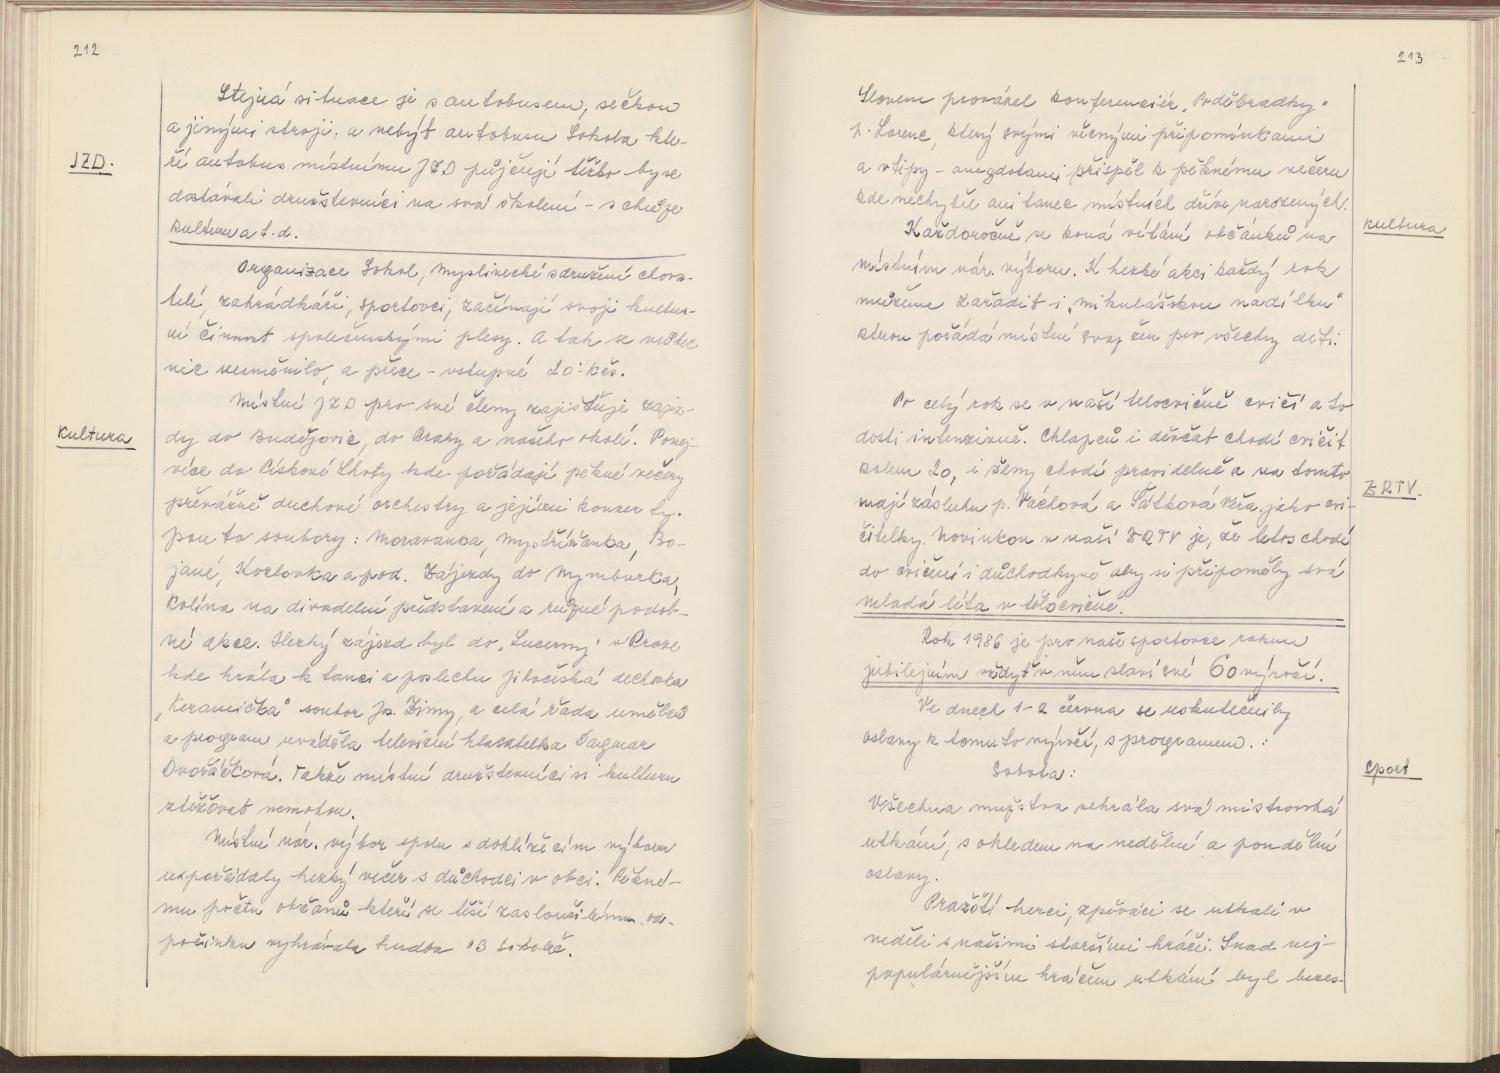 212
Stejná situace je s autobusem, sečkou
a jinými stroji, a nebýt autobusu Sokola kte-
JZD.
ří autobus místnímu JZD půjčují těžko by se
dostávali družstevníci na svá školení - schůze
kulturu a t.d.
Organizace Sokol, myslivecké sdružení chova-
telé, zahrádkáři, sportovci, začínají svoji kultur-
ní činnost společenskými plesy. A tak se vůbec
nic nezměnilo, a přece - vstupné 20:- kčs.
Místní JZD pro své členy zajišťuje zájez-
Kultura
dy do Budějovic, do Prahy a našeho okolí. Ponej-
více do Pískové Lhoty kde pořádají pěkné večery
převážně duchové orchestry a jejími koncerty.
jsou to soubory: Moravanka, Mystříňanka, Bo-
jané, Kozlovka a pod. Zájezdy do Nymburka,
Kolína na divadelní představení a různé podob-
né akce. Hezký zájezd byl do „Lucerny" v Praze
kde hrála k tanci a poslechu jihočeská dechovka
„Keramička" soubor Jos. Zímy, a celá řada umělců
a program uváděla televizní hlasatelka Dagmar
Dvořáčková. Takže místní družstevníci si kulturu
stěžovat nemohou.
Místní nár. výbor spolu s dohlížecím výborem
uspořádaly hezký večer s důchodci v obci. Pěkné-
mu počtu občanů kteří se těší zaslouženému od-
počinku vyhrávala hudba
213
Slovem provázel konferenciér „Poděbradky"
p. Lorenc, který svými věcnými připomínkami
a vtipy - anegdotami přispěl k pěknému večeru
kde nechyběl ani tanec místních dříve narozených.
Kultura
Každoročně se koná vítání občánků na
místním nár. výboru. K hezké akci každý rok
můžeme zařadit i „mikulášskou nadílku"
kterou pořádá místní svaz žen pro všechny děti.
Po celý rok se v naší tělocvičně cvičí a to
dosti intenzivně. Chlapců i děvčat chodí cvičit
kolem 20, i ženy chodí pravidelně a na tomto
ZRTV.
mají zásluhu p. Váchová a Šátková Věra, jako cvi-
čitelky. Novinkou v naší ZRTV je, že letos chodí
do cvičení i důchodkyně aby si připoměly svá
mladá léta v tělocvičně.
Rok 1986 je pro naše sportovce rokem
jubilejním vždyť v něm slaví své 60 výročí.
Ve dnech 1-2 června se uskutečnily
oslavy k tomuto výročí, s programem. :
Sport
Sobota:
Všechna mužstva sehrála svá mistrovská
utkání, s ohledem na nedělní a pondělní
oslavy.
Pražští herci, zpěváci se utkali v
neděli s našimi staršími hráči. Snad nej-
populárnějším hráčem utkání byl bezes-